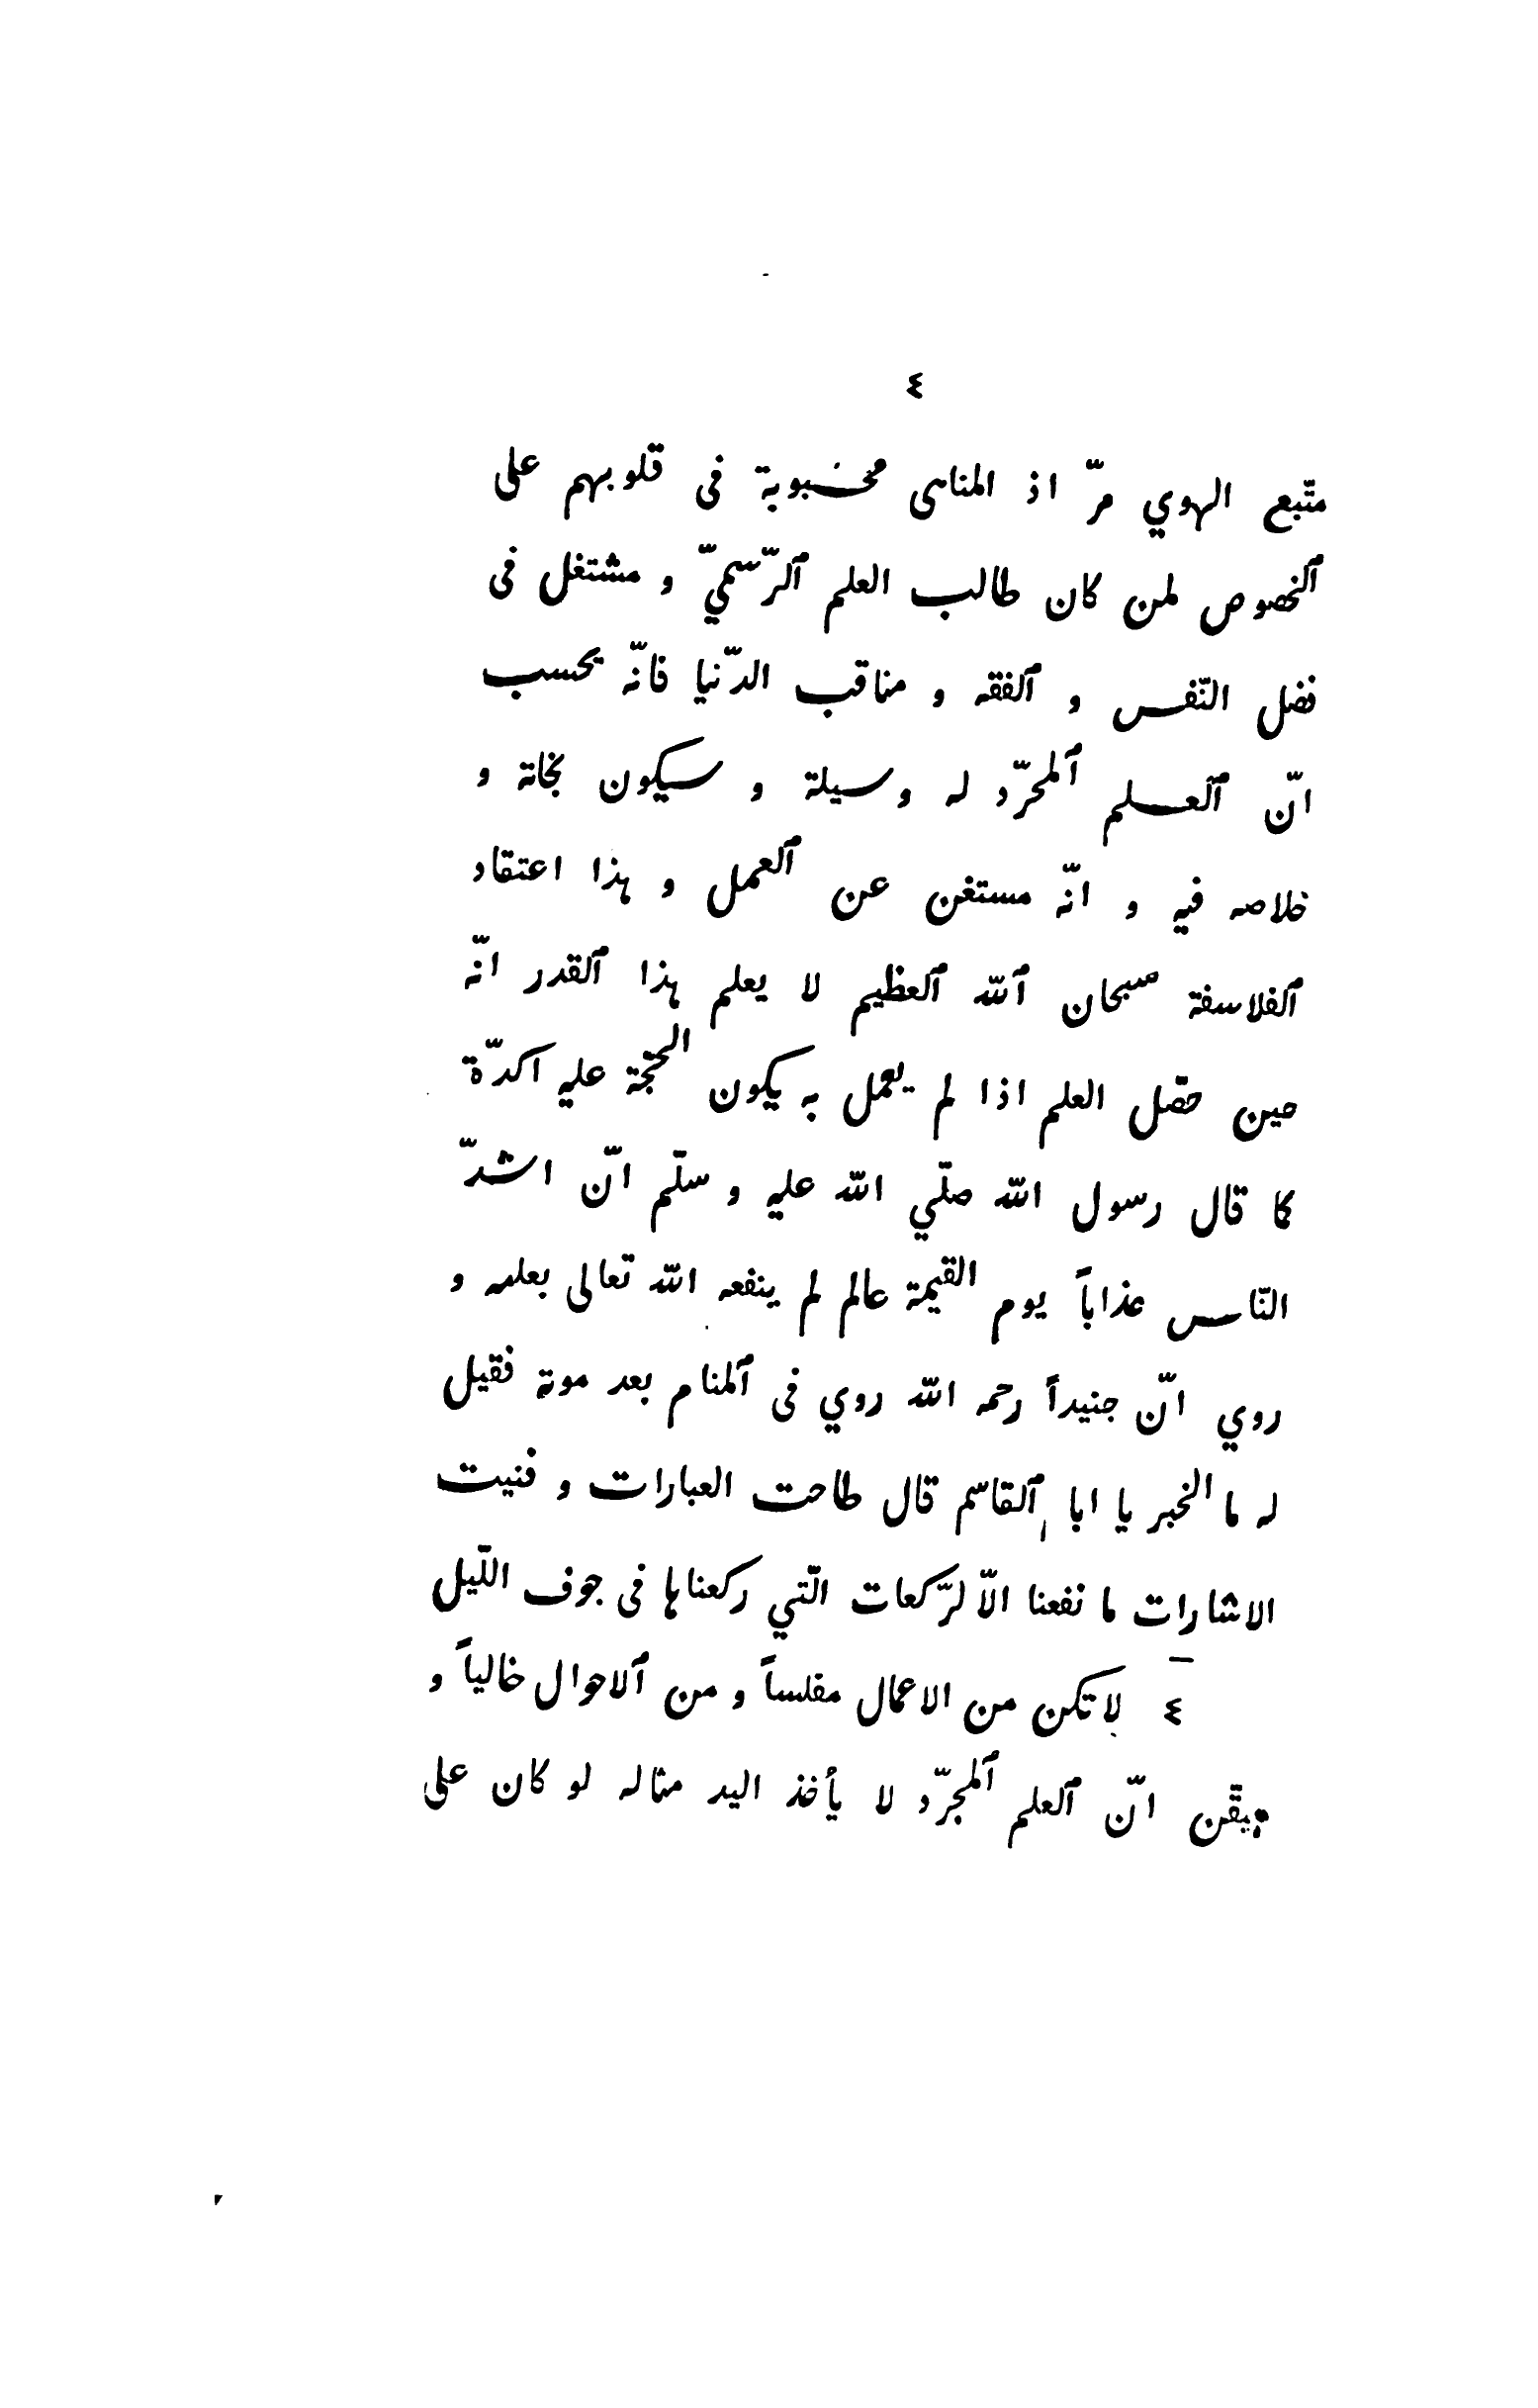 ٤
متّبع الهوي مرّ اذ المناهى محبوبة فى قلوبهم على
ٱلخصوص لمن كان طالب العلم ٱلرّسميّ و مشتغل فى
فضل النّفس و ٱلفقه و مناقب الدّنيا فانّه يحسب
انّ ٱلعلم ٱلمجرّد له وسيلة و سيكون نجاته و
خلاصه فيه و انّه مستغن عن ٱلعمل و هذا اعتقاد
ٱلفلاسفة سبحان ٱللّه ٱلعظيم لا يعلم هذا ٱلقدر انّه
حين حصّل العلم اذا لم يعمل به يكون الحجّة عليه اكدّة
كا قال رسول اللّه صلّي اللّه عليه و سلّم انّ اشدّ
النّاس عذاباً يوم القيمة عالم لم ينفعه اللّه تعالى بعلمه و
روي انّ جنيداً رحمه اللّه روي فى ٱلمنام بعد موته فقيل
له ما الخبر يا ابا ٱلقاسم قال طاحت العبارات و فنيت
الاشارات ما نفعنا الاّ لرّكعات الّتي ركعناها فى جوف اللّيل
٤ لا تكن من الاعمال مفلساً و من ٱلاحوال خالياً و
تيقّن انّ ٱلعلم ٱلمجرّد لا يأخذ اليد مثاله لو كان على